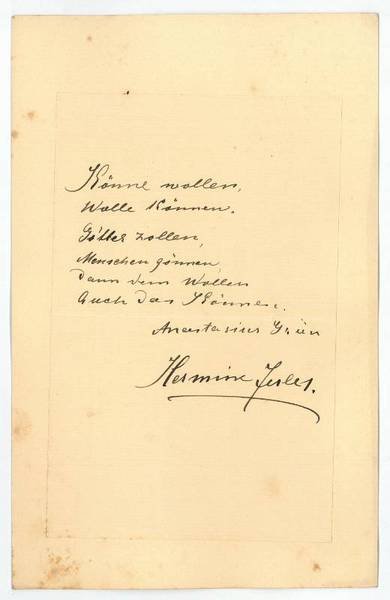 Könne wollen,
Wolle Können.
Götter zollen,
Menschen gönnen
Dann dem Wollen
Auch das Können.
Anastasius Grün
Hermine